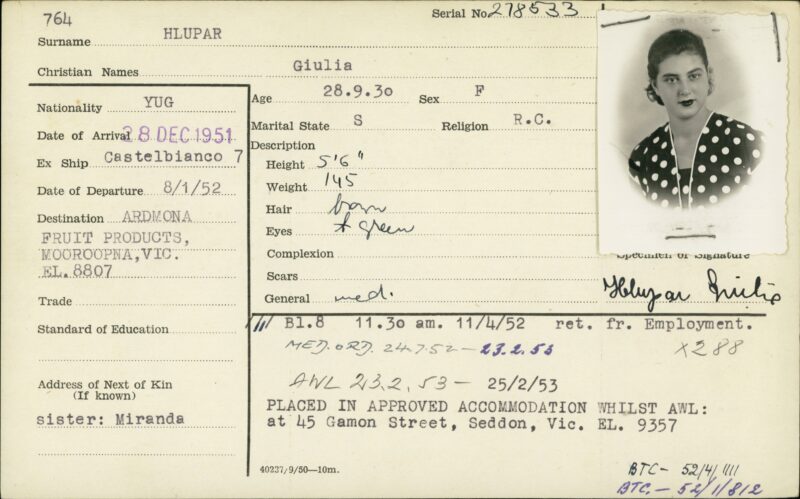 764
Serial No. 278533
Surname HLUPAR
Christian Names Giulia
Nationality YUG
Date of Arrival 28 DEC 1951
Ex Ship Castelbianco 7
Date of Departure 8/1/52
Destination ARDMONA
FRUIT PRODUCTS,
MOOROOPNA, VIC.
EL.8807
Trade
Standard of Education
Address of Next of Kin
(If known)
sister: Miranda
Age 28.9.30 Sex F
Marital State S Religion R.C.
Description
Height 5'6"
Weight 145
Hair brown
Eyes green
Complexion
Scars
General med.
Specimen of Signature
Hlupar Giulia
Bl.8 11.30 am. 11/4/52 ret. fr. Employment.
MED. ORD. 24.7.52 — 23.2.53
X288
AWL 23.2.53 — 25/2/53
PLACED IN APPROVED ACCOMMODATION WHILST AWL:
at 45 Gamon Street, Seddon, Vic. EL. 9357
40237/9/50—10m.
BTC— 52/4/1111
BTC— 52/1/812